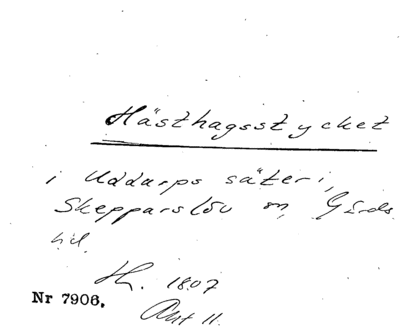 Hästhagsstycket
i Uddarps säteri,
Skepparslöv sn, Gärds
hd.
Hh. 1807
Nr 7906.
Akt 11.